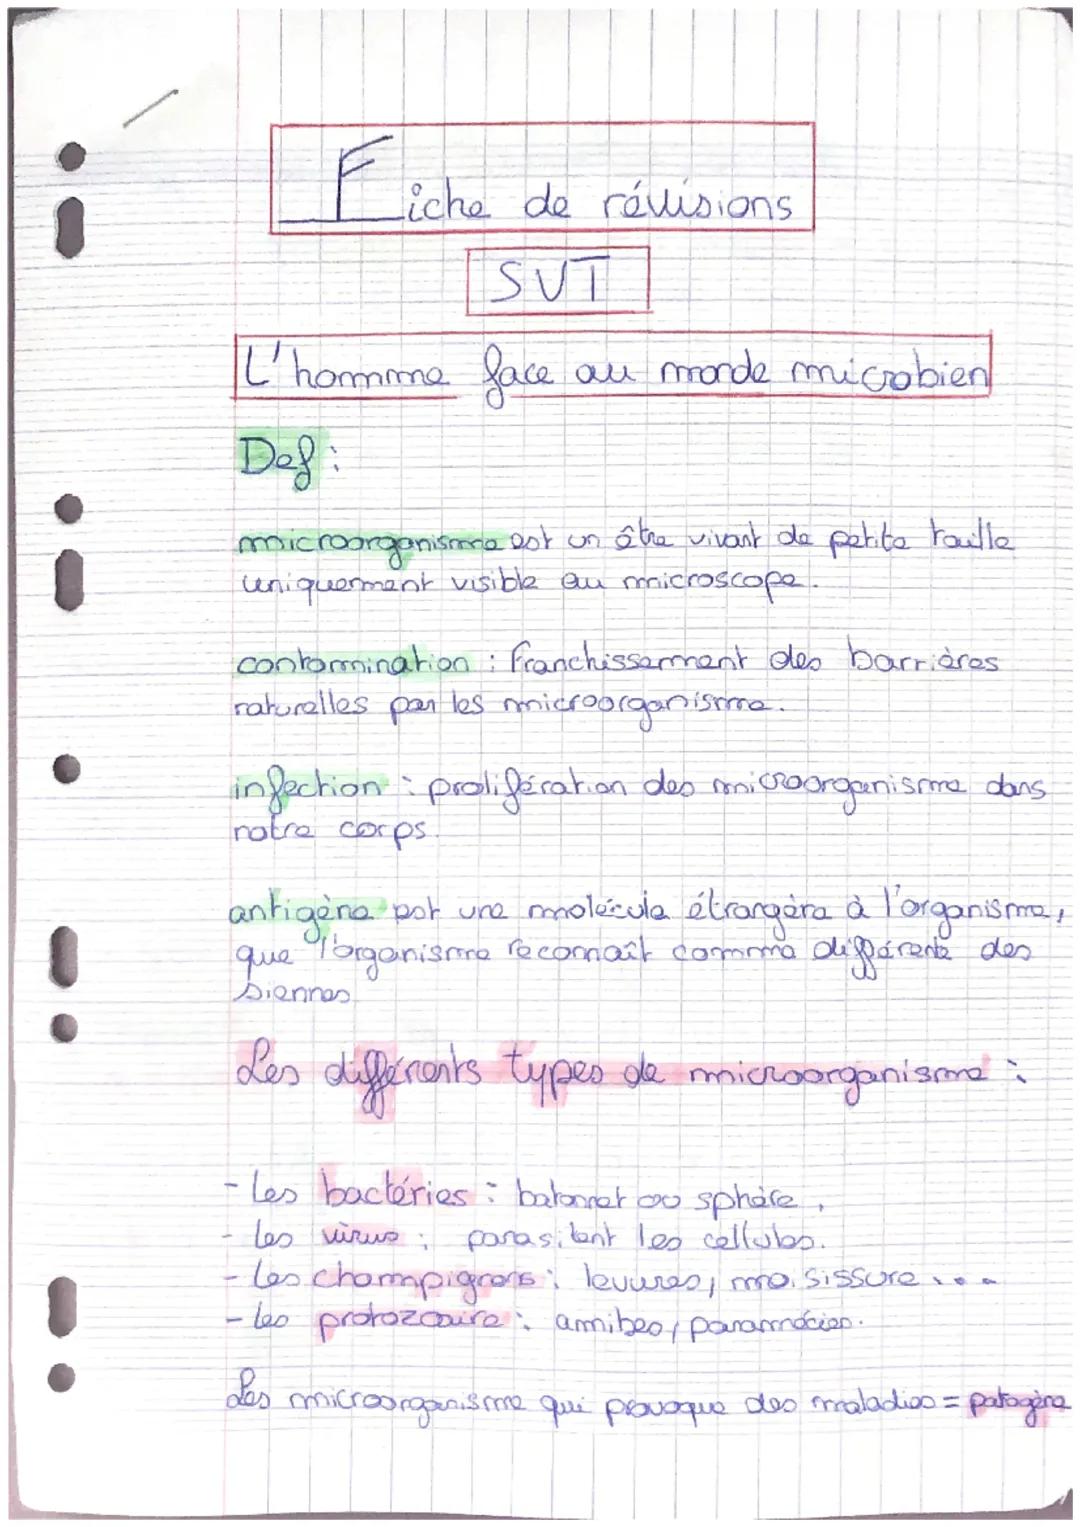 Fiche de révisions
SVT
L'homme face au monde microbien
Def :
microorganisme est un être vivant de petite taille
uniquement visible au microscope.
contamination : franchissement des barrières
naturelles par les microorganisme.
infection : prolifération des microorganisme dans
notre corps.
antigène est une molécule étrangère à l'organisme,
que l'organisme reconnaît comme différente des
siennes
Les différents types de microorganisme :
- Les bactéries : batonnet ou sphère.
- les virus : parasitent les cellules.
- Les champignons : levures, moisissure ...
- les protozoaire : amibes, paramécies.
Les microorganisme qui provoque des maladies = patogène